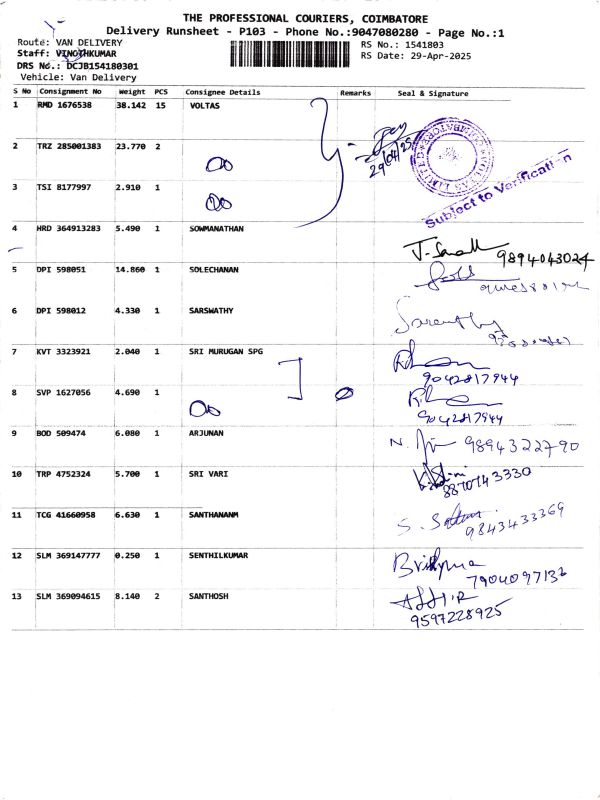 THE PROFESSIONAL COURIERS, COIMBATORE
Delivery Runsheet - P103 - Phone No.:9047080280 - Page No.:1
Route: VAN DELIVERY
RS No.: 1541803
Staff: VINOTHKUMAR
RS Date: 29-Apr-2025
DRS No.: DCJB154180301
Vehicle: Van Delivery
S No Consignment No Weight PCS Consignee Details Remarks Seal & Signature
1 RMD 1676538 38.142 15 VOLTAS
29/04/25
2 TRZ 285001383 23.770 2
3 TSI 8177997 2.910 1
Subject to Verification
4 HRD 364913283 5.490 1 SOWMANATHAN
9894043024
5 DPI 598051 14.860 1 SOLECHANAN
6 DPI 598012 4.330 1 SARSWATHY
7 KVT 3323921 2.040 1 SRI MURUGAN SPG
9042817944
8 SVP 1627056 4.690 1
9042817944
9 BOD 509474 6.080 1 ARJUNAN
9894322790
10 TRP 4752324 5.700 1 SRI VARI
8870743330
11 TCG 41660958 6.630 1 SANTHANANM
9843433369
12 SLM 369147777 0.250 1 SENTHILKUMAR
7904097132
13 SLM 369094615 8.140 2 SANTHOSH
9597228925